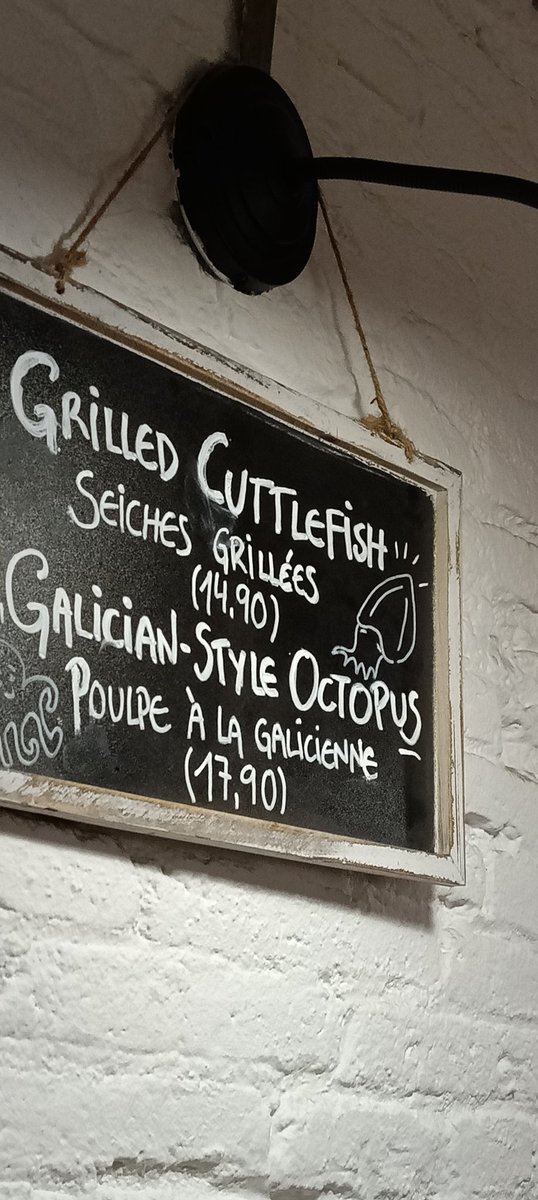 GRiLLED CUTTLEFiSH
SEiCHES GRiLLÉES
(14.90)
GALiCiAN-STYLE OCTOPUS
POULPE À LA GALiCiENNE
(17,90)